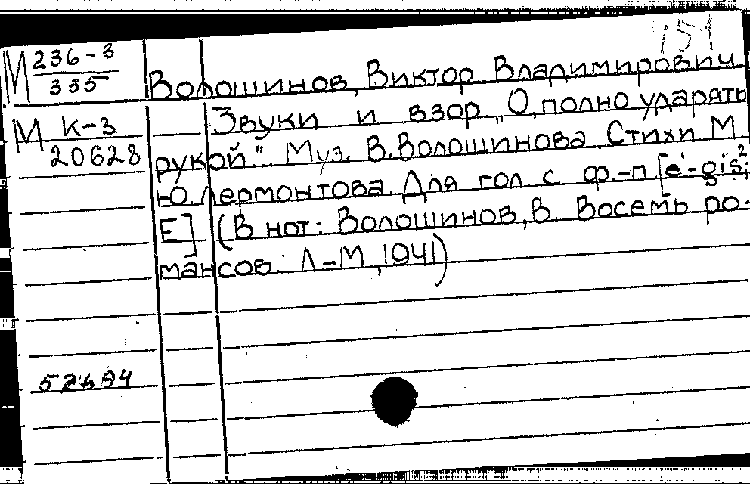 151
М 236-3
335
Волошинов, Виктор Владимирович
М К-3
20628
Звуки и взор „О, полно ударять
рукой." Муз. В. Волошинова. Стихи М.
Ю. Лермонтова. Для гол. с ф.-п. [e¹-gis²;
E] (В нот: Волошинов, В. Восемь ро-
мансов. Л-М, 1941)